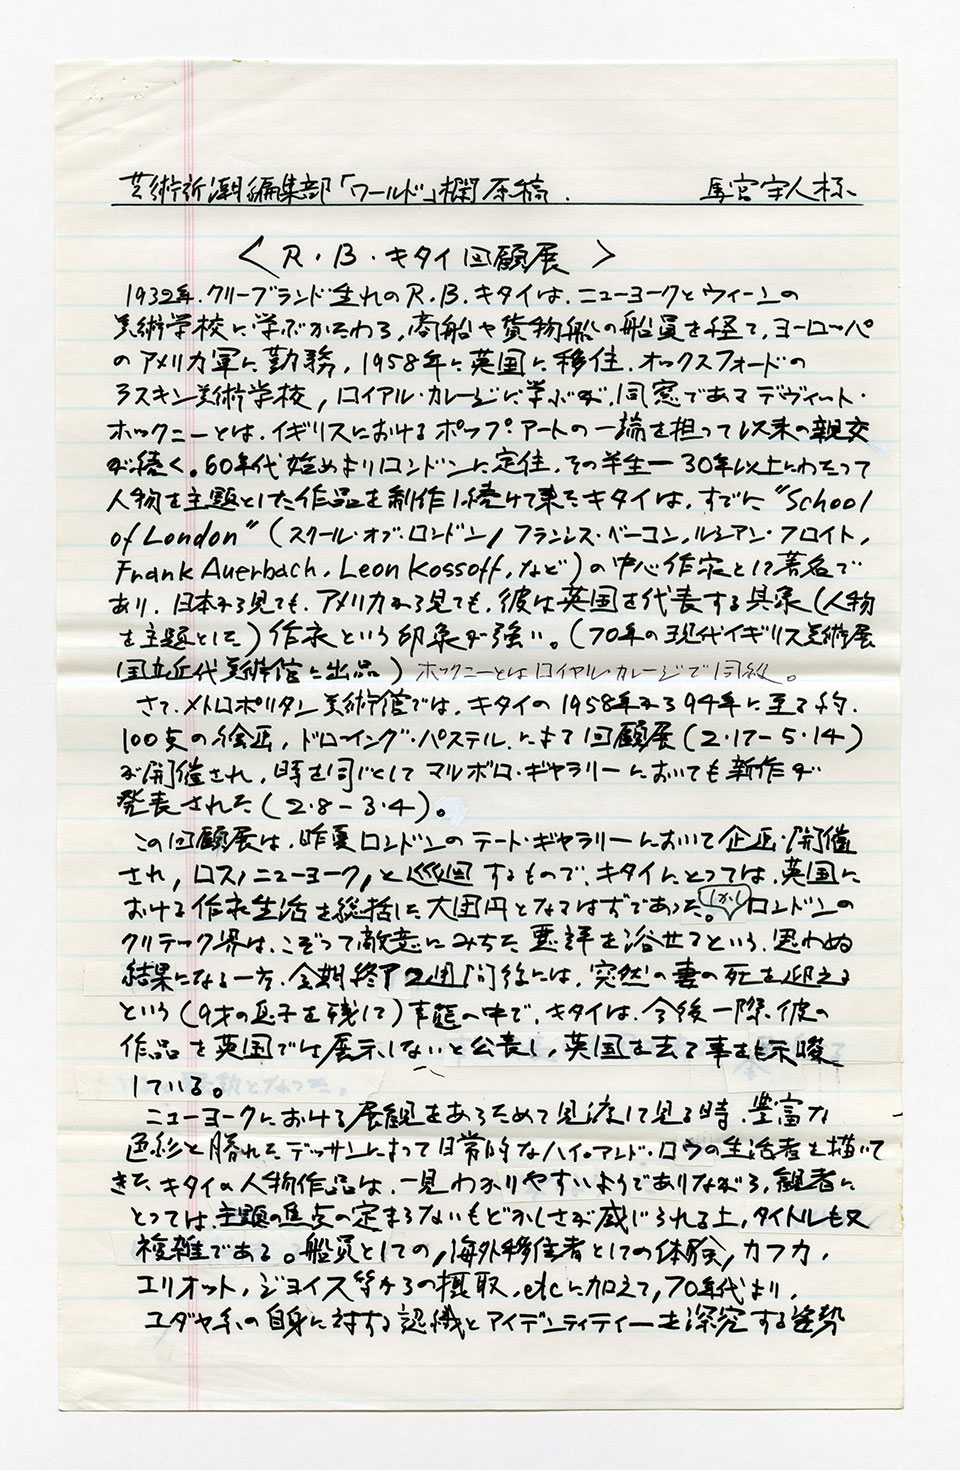 芸術新潮編集部「ワールド」欄原稿. 馬宮守人様
〈 R・B・キタイ回顧展 〉
1932年、クリーブランド生れのR.B.キタイは、ニューヨークとウィーンの
美術学校に学ぶかたわら、商船や貨物船の船員を経て、ヨーロッパ
のアメリカ軍に勤務、1958年に英国に移住、オックスフォードの
ラスキン美術学校、ロイアル・カレージに学ぶが、同窓であるデヴィット・
ホックニーとは、イギリスにおけるポップ・アートの一端を担って以来の親交
が続く。60年代始めよりロンドンに定住、その半生ー30年以上にわたって
人物を主題とした作品を制作し続けて来たキタイは、すでに"School
of London"(スクール・オブ・ロンドン/フランシス・ベーコン、ルシアン・フロイト、
Frank Auerbach, Leon Kossoff, など)の中心作家として著名で
あり、日本から見ても、アメリカから見ても、彼は英国を代表する具象(人物
を主題とした)作家という印象が強い。(70年の現代イギリス美術展
国立近代美術館に出品) ホックニーとはロイヤル・カレージで同級。
さて、メトロポリタン美術館では、キタイの1958年から94年に至る約、
100点の絵画、ドローイング・パステル、による回顧展(2・17-5・14)
が開催され、時を同じくしてマルボロ・ギャラリーにおいても新作が
発表された(2・8-3・4)。
この回顧展は、昨夏ロンドンのテート・ギャラリーにおいて企画・開催
され、ロス、ニューヨーク、と巡回するもので、キタイにとっては、英国に
おける作家生活を総括した大団円となるはずであった。しかしロンドンの
クリテック界は、こぞって敵意にみちた悪評を浴せるという、思わぬ
結果になる一方、会期終了2週間後には、突然の妻の死を迎える
という(9才の息子を残して)事態の中で、キタイは、今後一際、彼の
作品を英国では展示しないと公表し、英国を去る事をも示唆
している。
ニューヨークにおける展観をあらためて見渡して見る時、豊富な
色彩と勝れたデッサンによって日常的なハイ・アンド・ロウの生活者を描いて
きたキタイの人物作品は、一見わかりやすいようでありながら、観者に
とっては、主題の焦点の定まらないもどかしさが感じられる上、タイトルも又
複雑である。船員としての、海外移住者としての体験、カフカ、
エリオット、ジョイス等からの摂取、etcに加えて、70年代より、
ユダヤ系の自身に対する認識とアイデンティティーを深究する姿勢